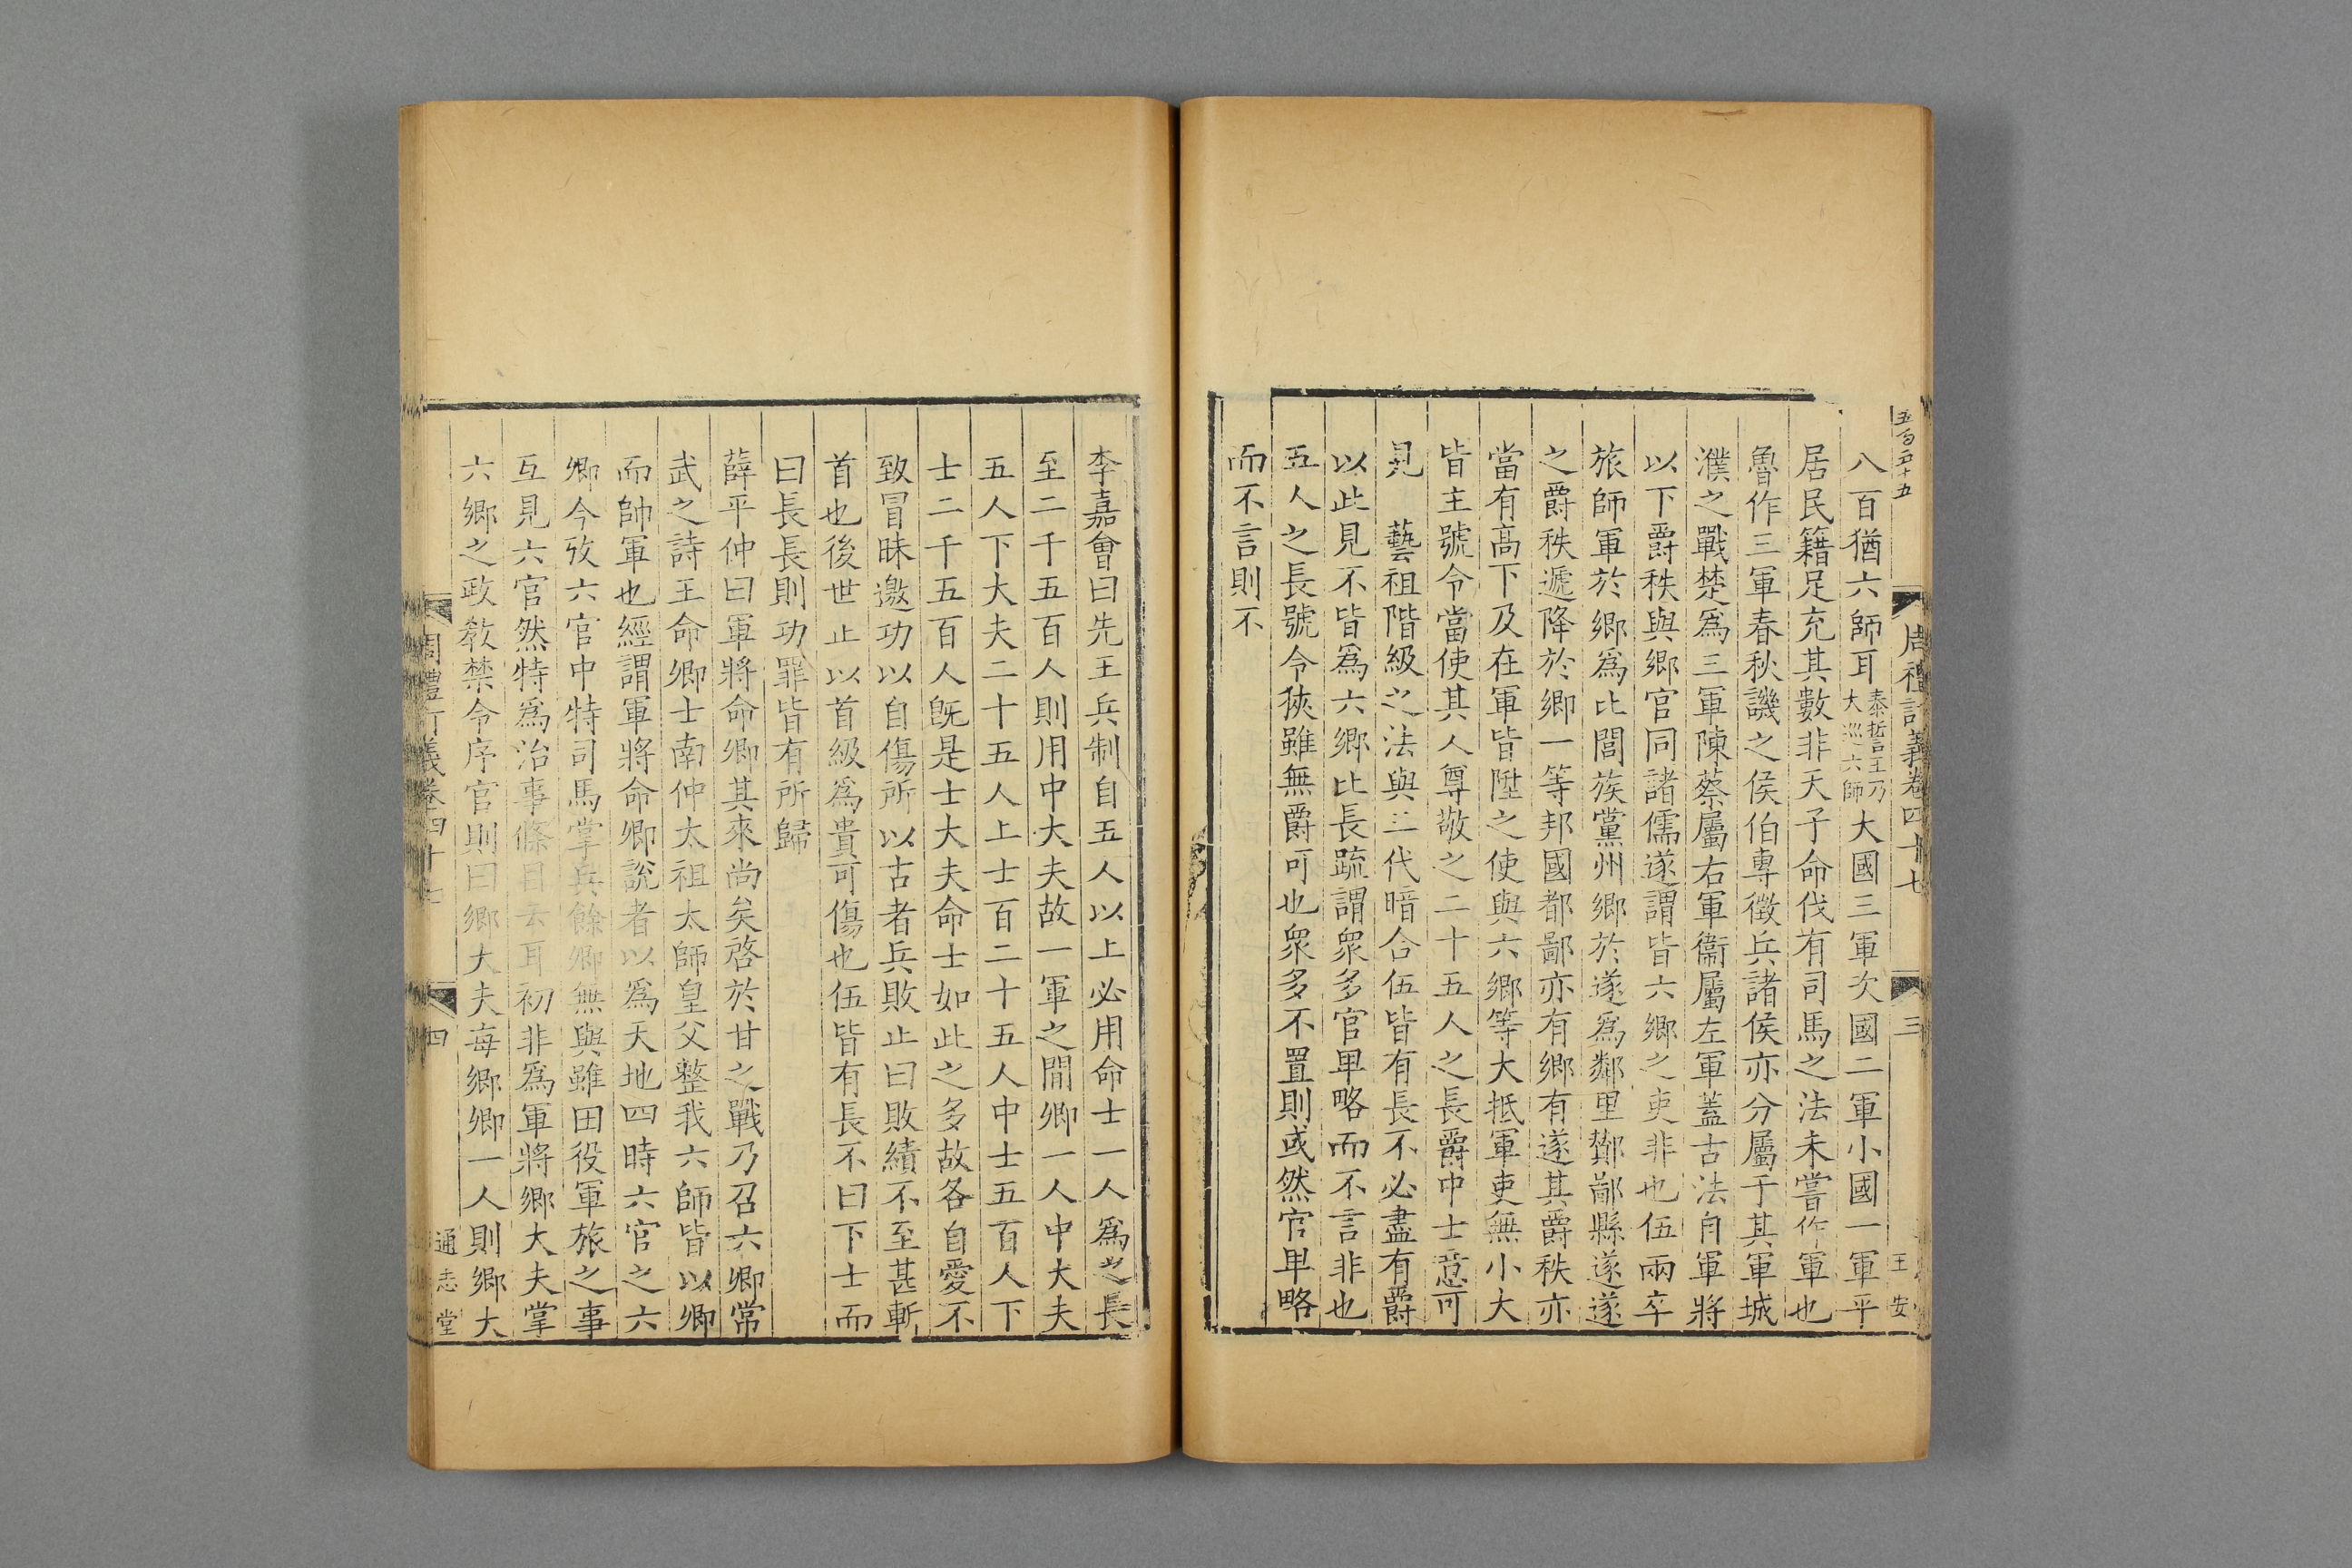 五百六十五
周禮訂義卷四十七
三
王安
八百猶六師耳泰誓王乃大巡六師大國三軍次國二軍小國一軍平
居民籍足充其數非天子命伐有司馬之法未嘗作軍也
魯作三軍春秋譏之侯伯專徵兵諸侯亦分屬于其軍城
濮之戰楚爲三軍陳蔡屬右軍衞屬左軍蓋古法自軍將
以下爵秩與鄉官同諸儒遂謂皆六鄉之吏非也伍兩卒
旅師軍於鄉爲比閭族黨州鄉於遂爲鄰里酇鄙縣遂遂
之爵秩遞降於鄉一等邦國都鄙亦有鄉有遂其爵秩亦
當有高下及在軍皆陞之使與六鄉等大抵軍吏無小大
皆主號令當使其人尊敬之二十五人之長爵中士意可
見　藝祖階級之法與三代暗合伍皆有長不必盡有爵
以此見不皆爲六鄉比長疏謂衆多官卑略而不言非也
五人之長號令狹雖無爵可也衆多不置則或然官卑略
而不言則不
李嘉會曰先王兵制自五人以上必用命士一人爲之長
至二千五百人則用中大夫故一軍之閒卿一人中大夫
五人下大夫二十五人上士百二十五人中士五百人下
士二千五百人旣是士大夫命士如此之多故各自愛不
致冒昧邀功以自傷所以古者兵敗止曰敗績不至甚斬
首也後世止以首級爲貴可傷也伍皆有長不曰下士而
曰長長則功罪皆有所歸
薛平仲曰軍將命卿其來尚矣啓於甘之戰乃召六卿常
武之詩王命卿士南仲太祖太師皇父整我六師皆以卿
而帥軍也經謂軍將命卿說者以爲天地四時六官之六
卿今攷六官中特司馬掌兵餘卿無與雖田役軍旅之事
互見六官然特爲治事條目云耳初非爲軍將鄉大夫掌
六鄉之政敎禁令序官則曰鄉大夫每鄉卿一人則鄉大
周禮訂義卷四十七
四
通志堂